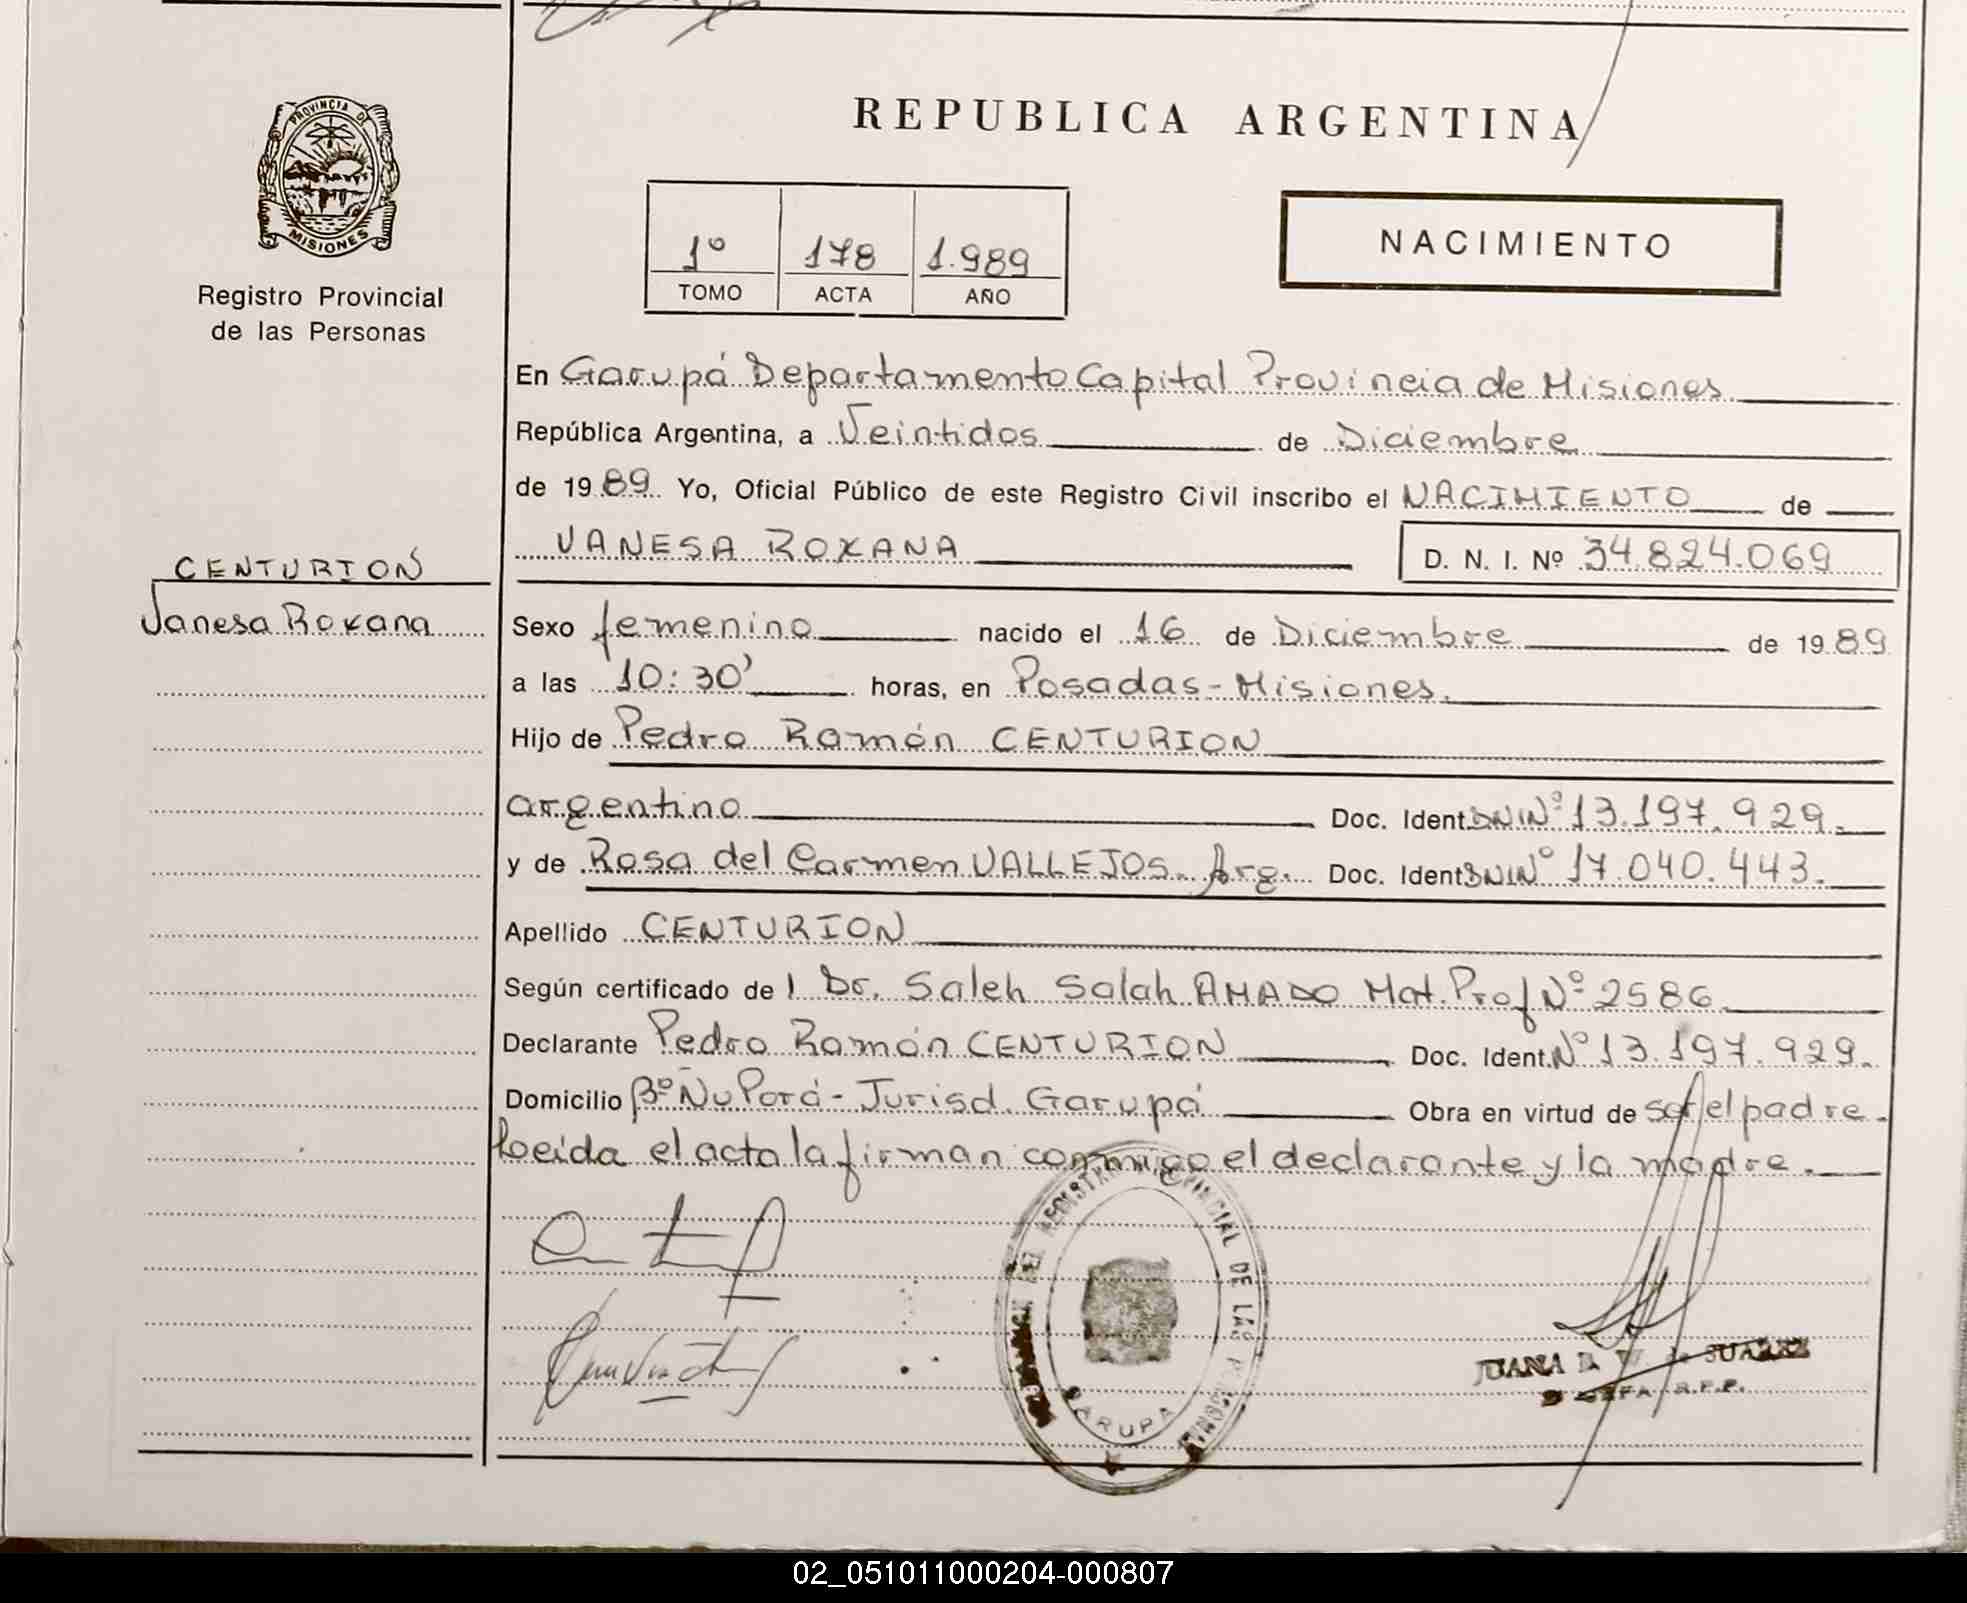 PROVINCIA DE
MISIONES
Registro Provincial
de las Personas
CENTURION
Vanesa Roxana
REPUBLICA ARGENTINA
1º 178 1.989
TOMO ACTA AÑO
NACIMIENTO
En Garupá Departamento Capital Provincia de Misiones
República Argentina, a Veintidos de Diciembre
de 1989 Yo, Oficial Público de este Registro Civil inscribo el NACIMIENTO de
VANESA ROXANA D. N. I. Nº 34.824.069
Sexo femenino nacido el 16 de Diciembre de 1989
a las 10:30' horas, en Posadas-Misiones.
Hijo de Pedro Ramón CENTURION
argentino Doc. Ident. DNI Nº 13.197.929.
y de Rosa del Carmen VALLEJOS Arg. Doc. Ident. DNI Nº 17.040.443.
Apellido CENTURION
Según certificado de l Dr. Saleh Salah AMADO Mat. Prof Nº 2586
Declarante Pedro Ramón CENTURION Doc. Ident. Nº 13.197.929.
Domicilio Bº Ñu Porá - Jurisd. Garupá Obra en virtud de ser el padre.
Leida el acta la firman conmigo el declarante y la madre.
REGISTRO PROVINCIAL DE LAS PERSONAS
GARUPA
JUANA de JUAREZ
JEFA R.P.P.
02_051011000204-000807